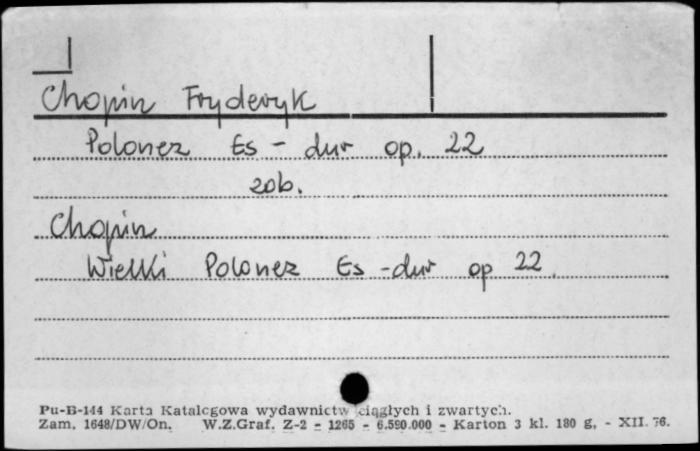 Chopin Fryderyk
Polonez Es - dur op. 22
zob.
Chopin
Wielki Polonez Es - dur op 22
Pu-B-144 Karta Katalogowa wydawnictw ciągłych i zwartych.
Zam. 1648/DW/On. W.Z.Graf. Z-2 - 1265 - 6.590.000 - Karton 3 kl. 180 g. - XII. 76.